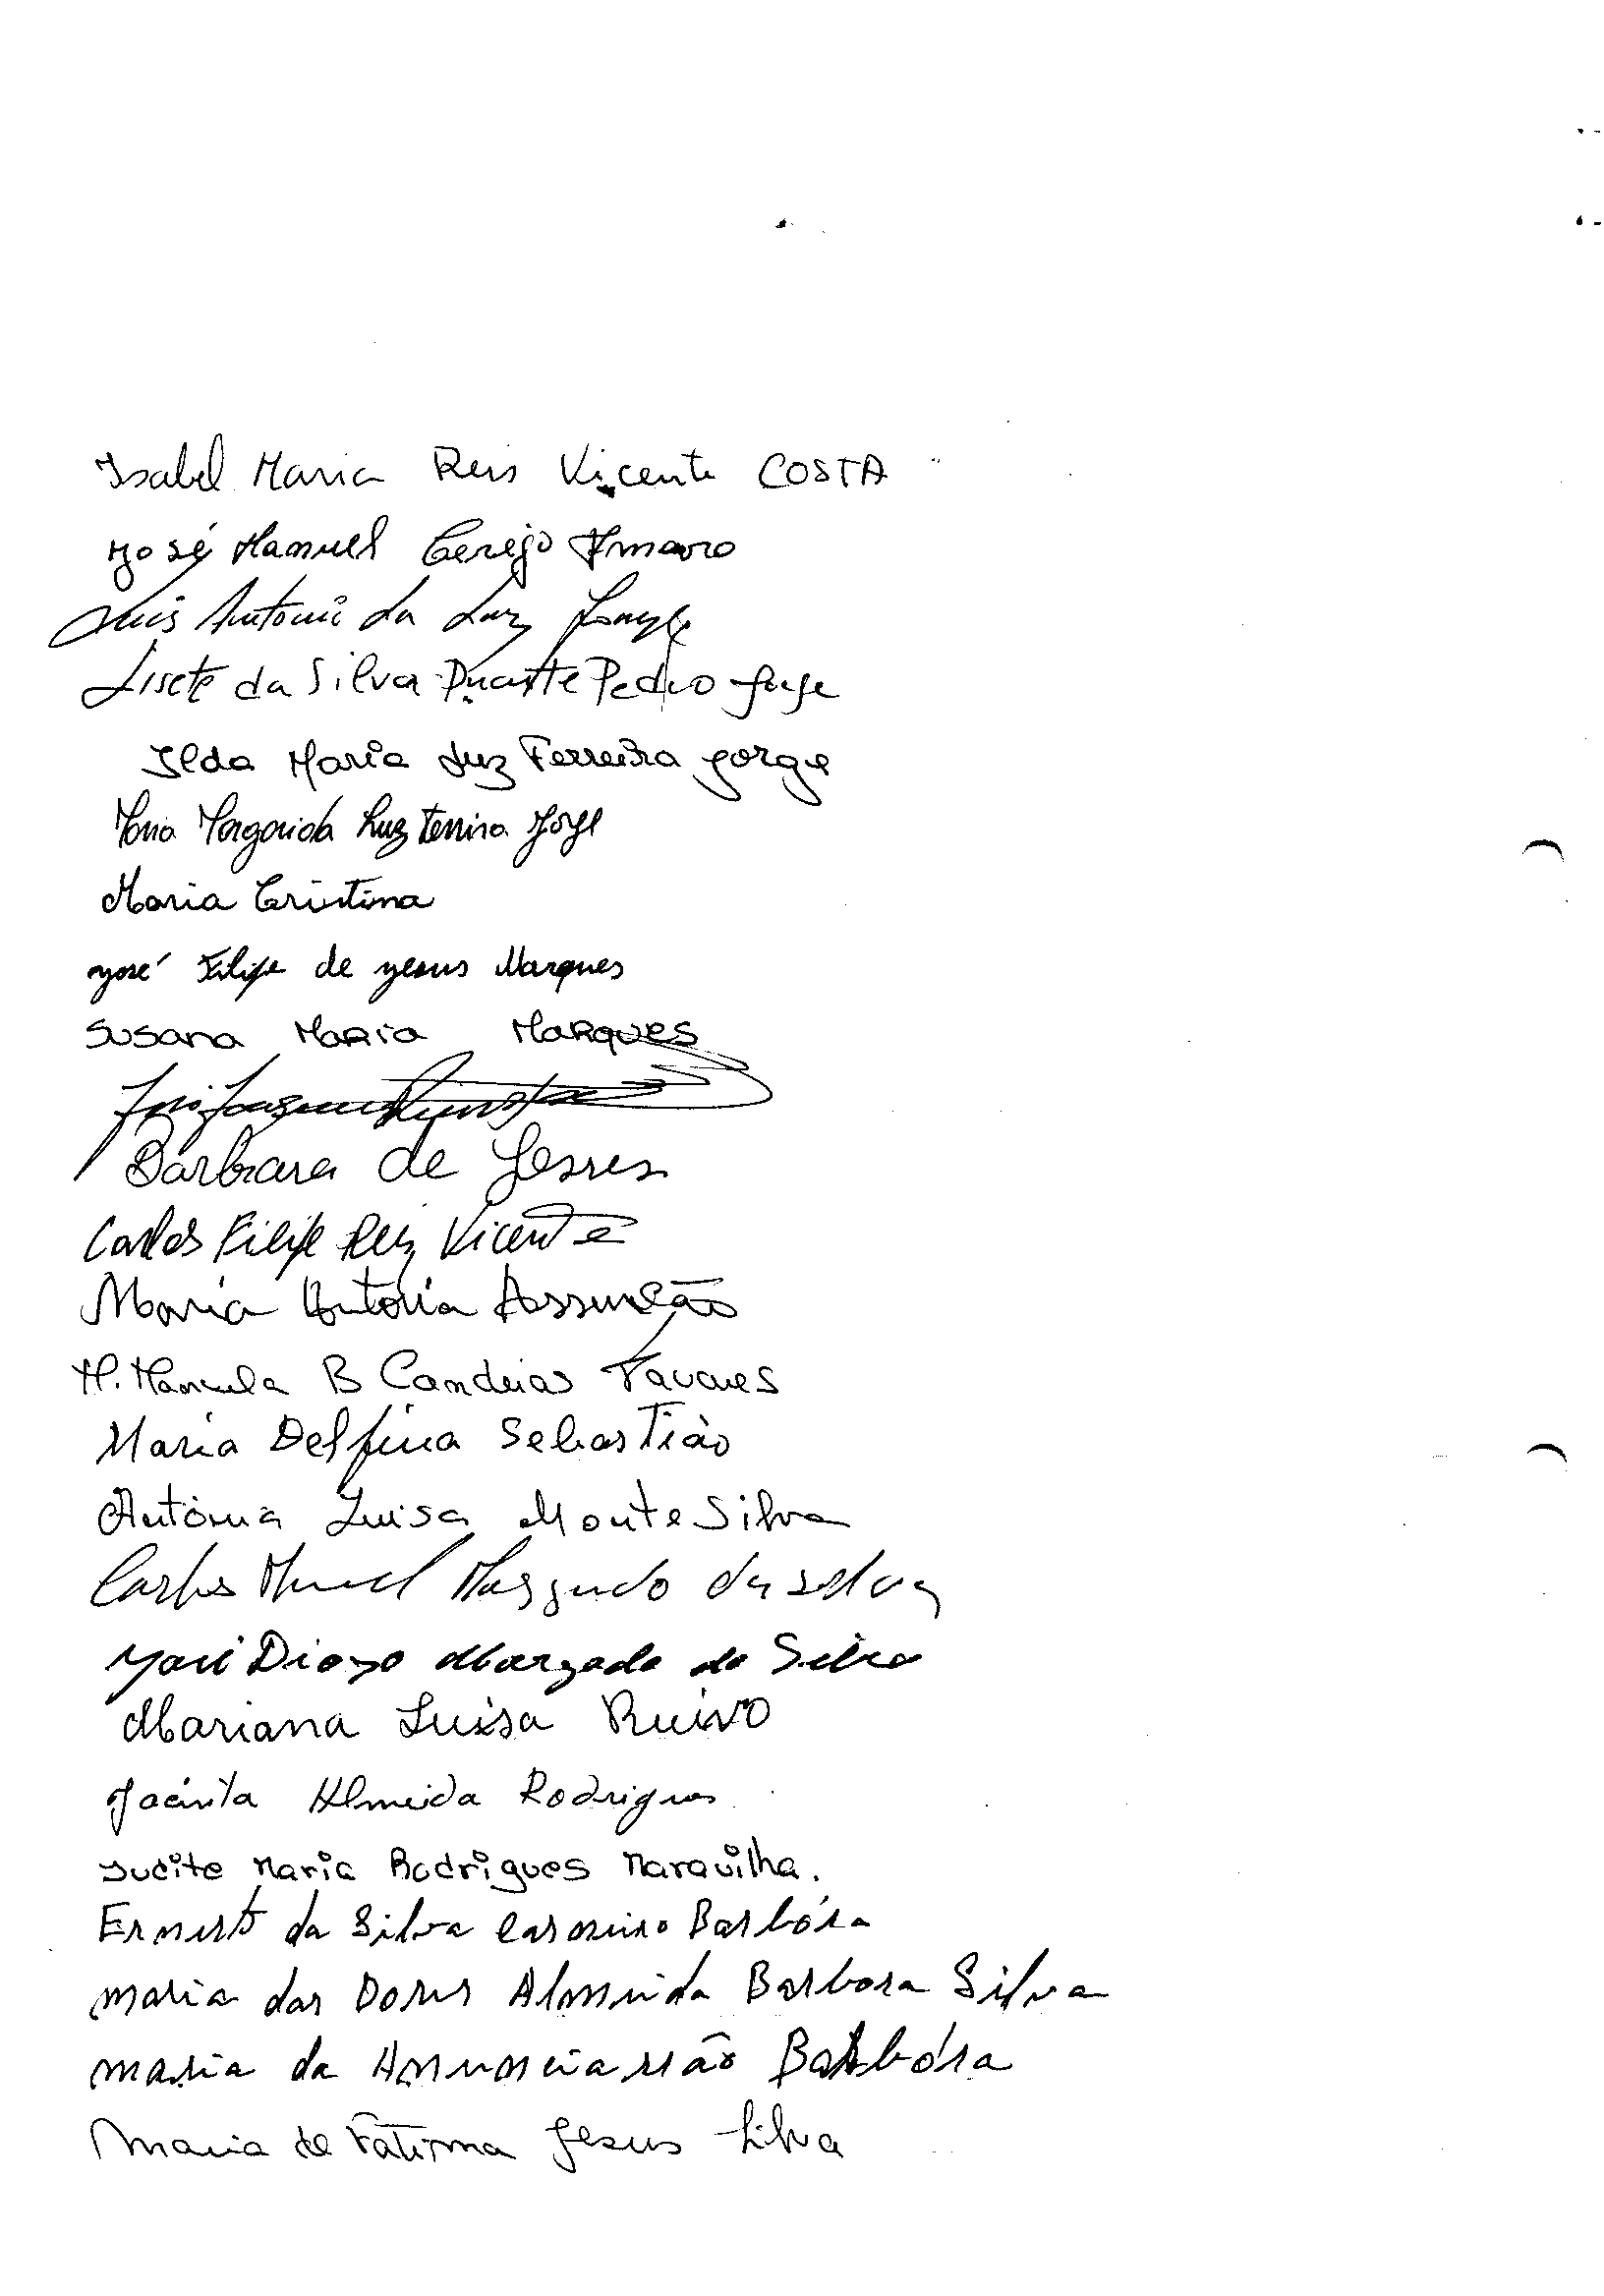 Isabel Maria Reis Vicente COSTA
José Manuel Cerejo Amaro
Luis Antonio da Luz Jorge
Lisete da Silva Duarte Pedro Jorge
Ilda Maria Luz Ferreira Jorge
Maria Margarida Luz Ferreira Jorge
Maria Cristina
José Filipe de Jesus Marques
Susana Maria Marques
Joaquim
Barbara de Jesus
Carlos Filipe Reis Vicente
Maria Antónia Assunção
M. Manuela B Candeias Tavares
Maria Delfina Sebastião
Antónia Luisa Monte Silva
Carlos Manuel Morgado da Silva
José Diogo Morgado da Silva
Mariana Luisa Ruivo
Jacinta Almeida Rodrigues
Judite Maria Rodrigues Maravilha.
Ernesto da Silva Casmiro Barbósa
Maria das Dores Almeida Barbosa Silva
Maria da Anunciassão Barbósa
Maria de Fátima Jesus Silva